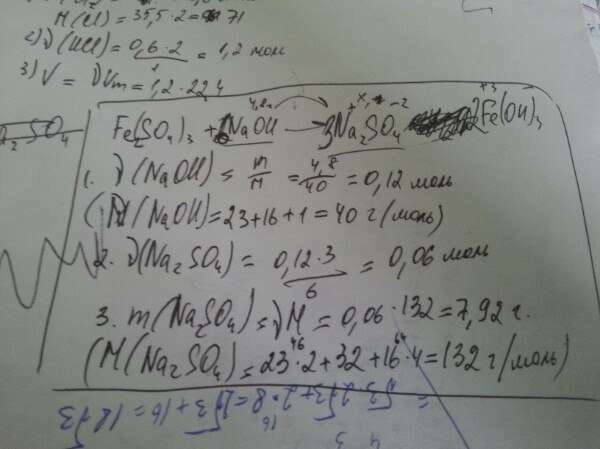 M(Cl) = 35,5·2 = 71
2) ν(HCl) = 0,6·2 / 1 = 1,2 моль
3) V = νVm = 1,2·22,4
2SO4
4,8г +x, -2 +3
Fe2(SO4)3 + 6NaOH → 3Na2SO4 2Fe(OH)3
1. ν(NaOH) = m/M = 4,8/40 = 0,12 моль
(M(NaOH) = 23+16+1 = 40 г/моль)
2. ν(Na2SO4) = 0,12·3 / 6 = 0,06 моль
3. m(Na2SO4) = νM = 0,06·132 = 7,92 г.
46 64
(M(Na2SO4) = 23·2+32+16·4 = 132 г/моль)